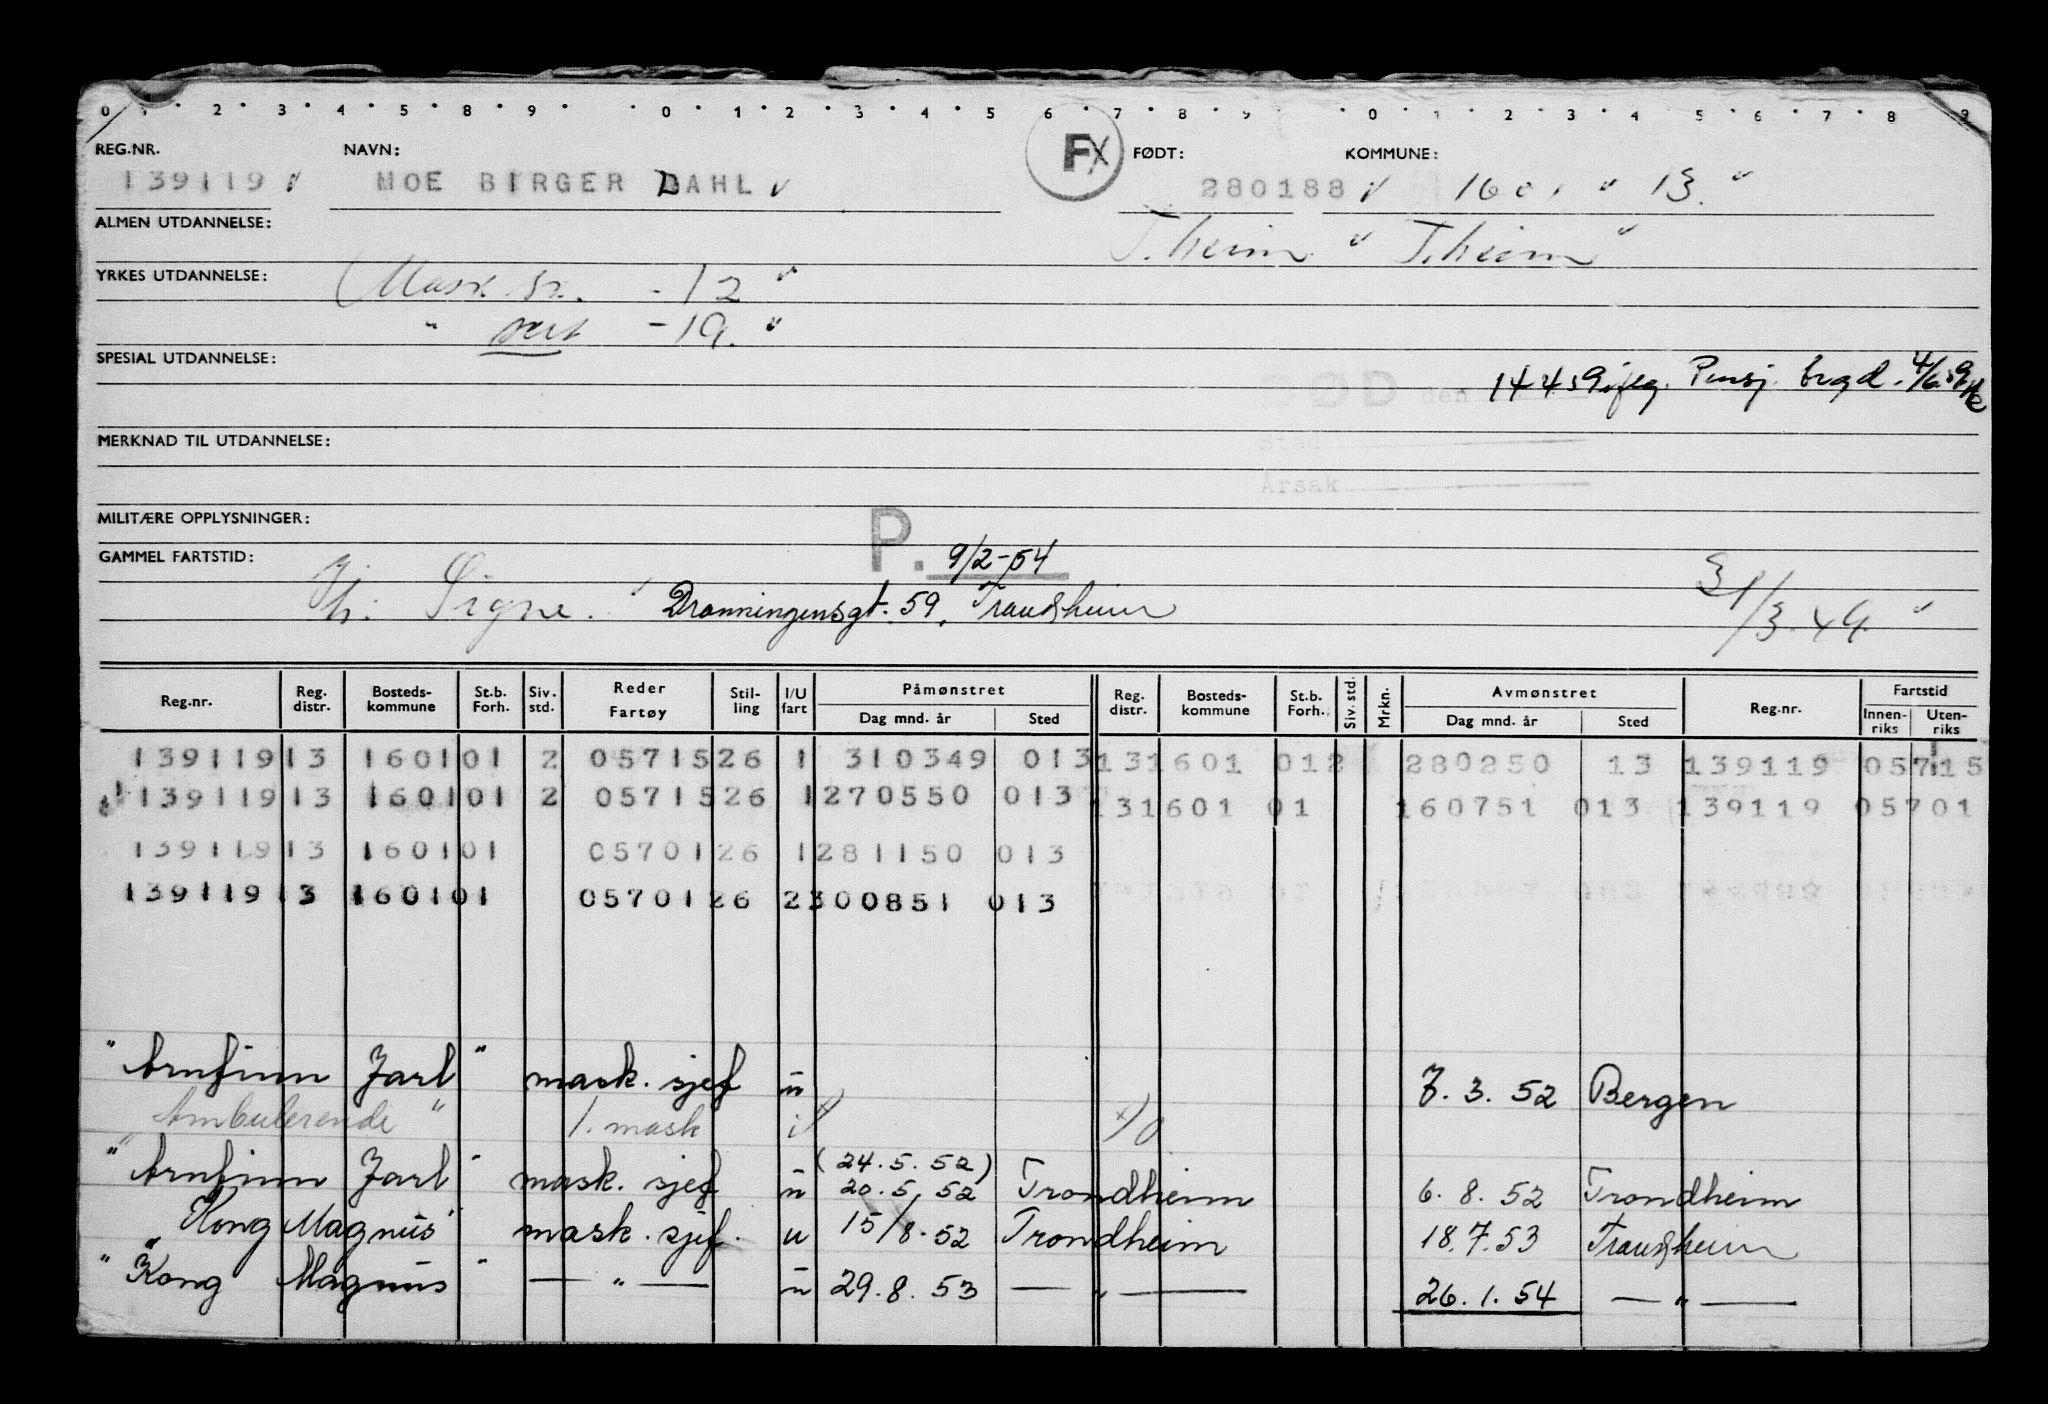 0 1 2 3 4 5 6 8 9 0 1 2 3 4 5 6 7 8 9 0 1 2 3 4 5 6 7 8 9
REG.NR. NAVN: FX FØDT: KOMMUNE:
139119 MOE BIRGER DAHL 280188 1601 13.
ALMEN UTDANNELSE: T.heim T.heim
YRKES UTDANNELSE: Mask. sk. - 12
" sert - 19.
SPESIAL UTDANNELSE:
DØD den Pensj. bragd. 4/6.59
MERKNAD TIL UTDANNELSE: Sted
Årsak
MILITÆRE OPPLYSNINGER: P. 9/2-54
GAMMEL FARTSTID: 31/3.49.
H: Signe. Dronningensgt. 59, Trondheim
Reg.nr. Reg. distr. Bosteds-kommune St.b. Forh. Siv. std. Reder Fartøy Stil-ling I/U fart Påmønstret Dag mnd. år Sted Reg. distr. Bosteds-kommune St.b. Forh. Siv. std. Mrkn. Avmønstret Dag mnd. år Sted Reg.nr. Fartstid Innen-riks Uten-riks
139119 13 1601 01 2 05715 26 1 310349 013 13 1601 012 280250 13 139119 05715
139119 13 1601 01 2 05715 26 1 270550 013 13 1601 01 160751 013 139119 05701
139119 13 1601 01 05701 26 1 281150 013
139119 13 1601 01 05701 26 2 300851 013
"Arnfinn Jarl" mask. sjef u 7. 3. 52 Bergen
Ambulerende " 1. mask i x) x)
(24.5.52)
"Arnfinn Jarl" mask. sjef u 20.5.52 Trondheim 6. 8. 52 Trondheim
"Kong Magnus" mask. sjef. u 15/8.52 Trondheim 18.7.53 Trondheim
"Kong Magnus" — " — u 29.8.53 — " — 26.1.54 — " —